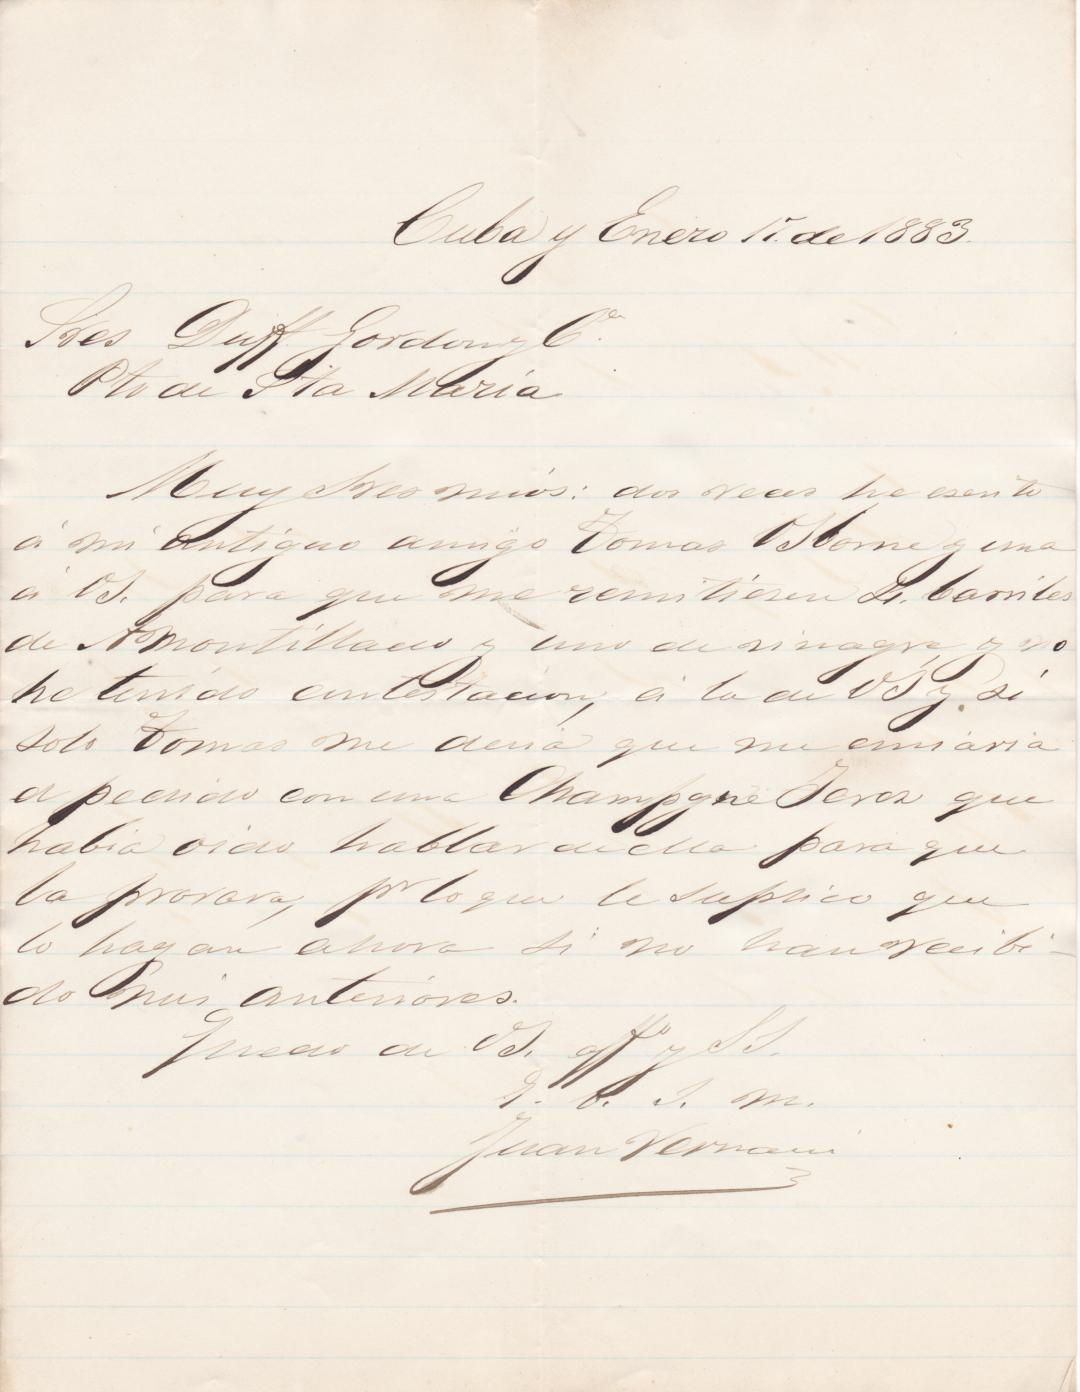 Cuba y Enero 15. de 1883.
Sres Duff Gordon y Cª.
Pto de Sta Maria
Muy Sres mios: dos veces he escrito
á mi antiguo amigo Tomas Osborne y una
á VS. para que me remitiesen 2. barriles
de Amontillado y uno de vinagre y no
he tenido contestacion, á la de VS y si
solo Tomas me decia que me enviaria
el pedido con una Champgne Jerez que
habia oido hablar de ella para que
la provara, pr lo que le suplico que
lo hagan ahora si no han recibi-
do mis anteriores.
Quedo de VS. affº y SS.
Q. b. S. m.
Juan